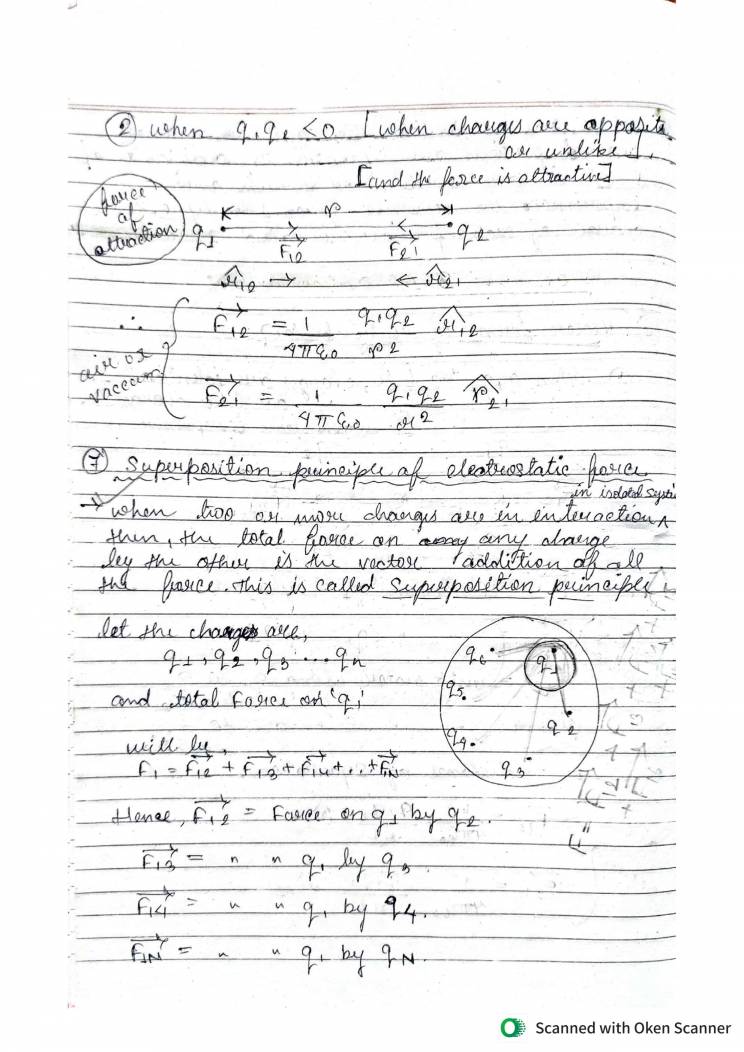 ② when q₁q₂ <0 [when charges are opposite
or unlike].
[and the force is attractive]
force
of
attraction
r
q₁ F₁₂ F₂₁ q₂
r̂₁₂ → ← r̂₂₁
∴ F₁₂ = 1/4πε₀ q₁q₂/r² r̂₁₂
air or
vaccum
F₂₁ = 1/4πε₀ q₁q₂/r² r̂₂₁
⑦ Superposition principle of electrostatic force
in isolated syst
→ when two or more charges are in interaction ^
then, the total force on any charge
by the other is the vector addition of all
the force. this is called superposition principle
let the charges are,
q₁, q₂, q₃ ... qn
and total Force on 'q₁'
will be,
F₁ = F₁₂ + F₁₃ + F₁₄ + .. + F₁N
q₆ q₁
q₅
q₂
q₄
q₃
Hence, F₁₂ = Force on q₁ by q₂.
F₁₃ = " " q₁ by q₃.
F₁₄ = " " q₁ by q₄.
F₁N = " " q₁ by qN.
Scanned with Oken Scanner